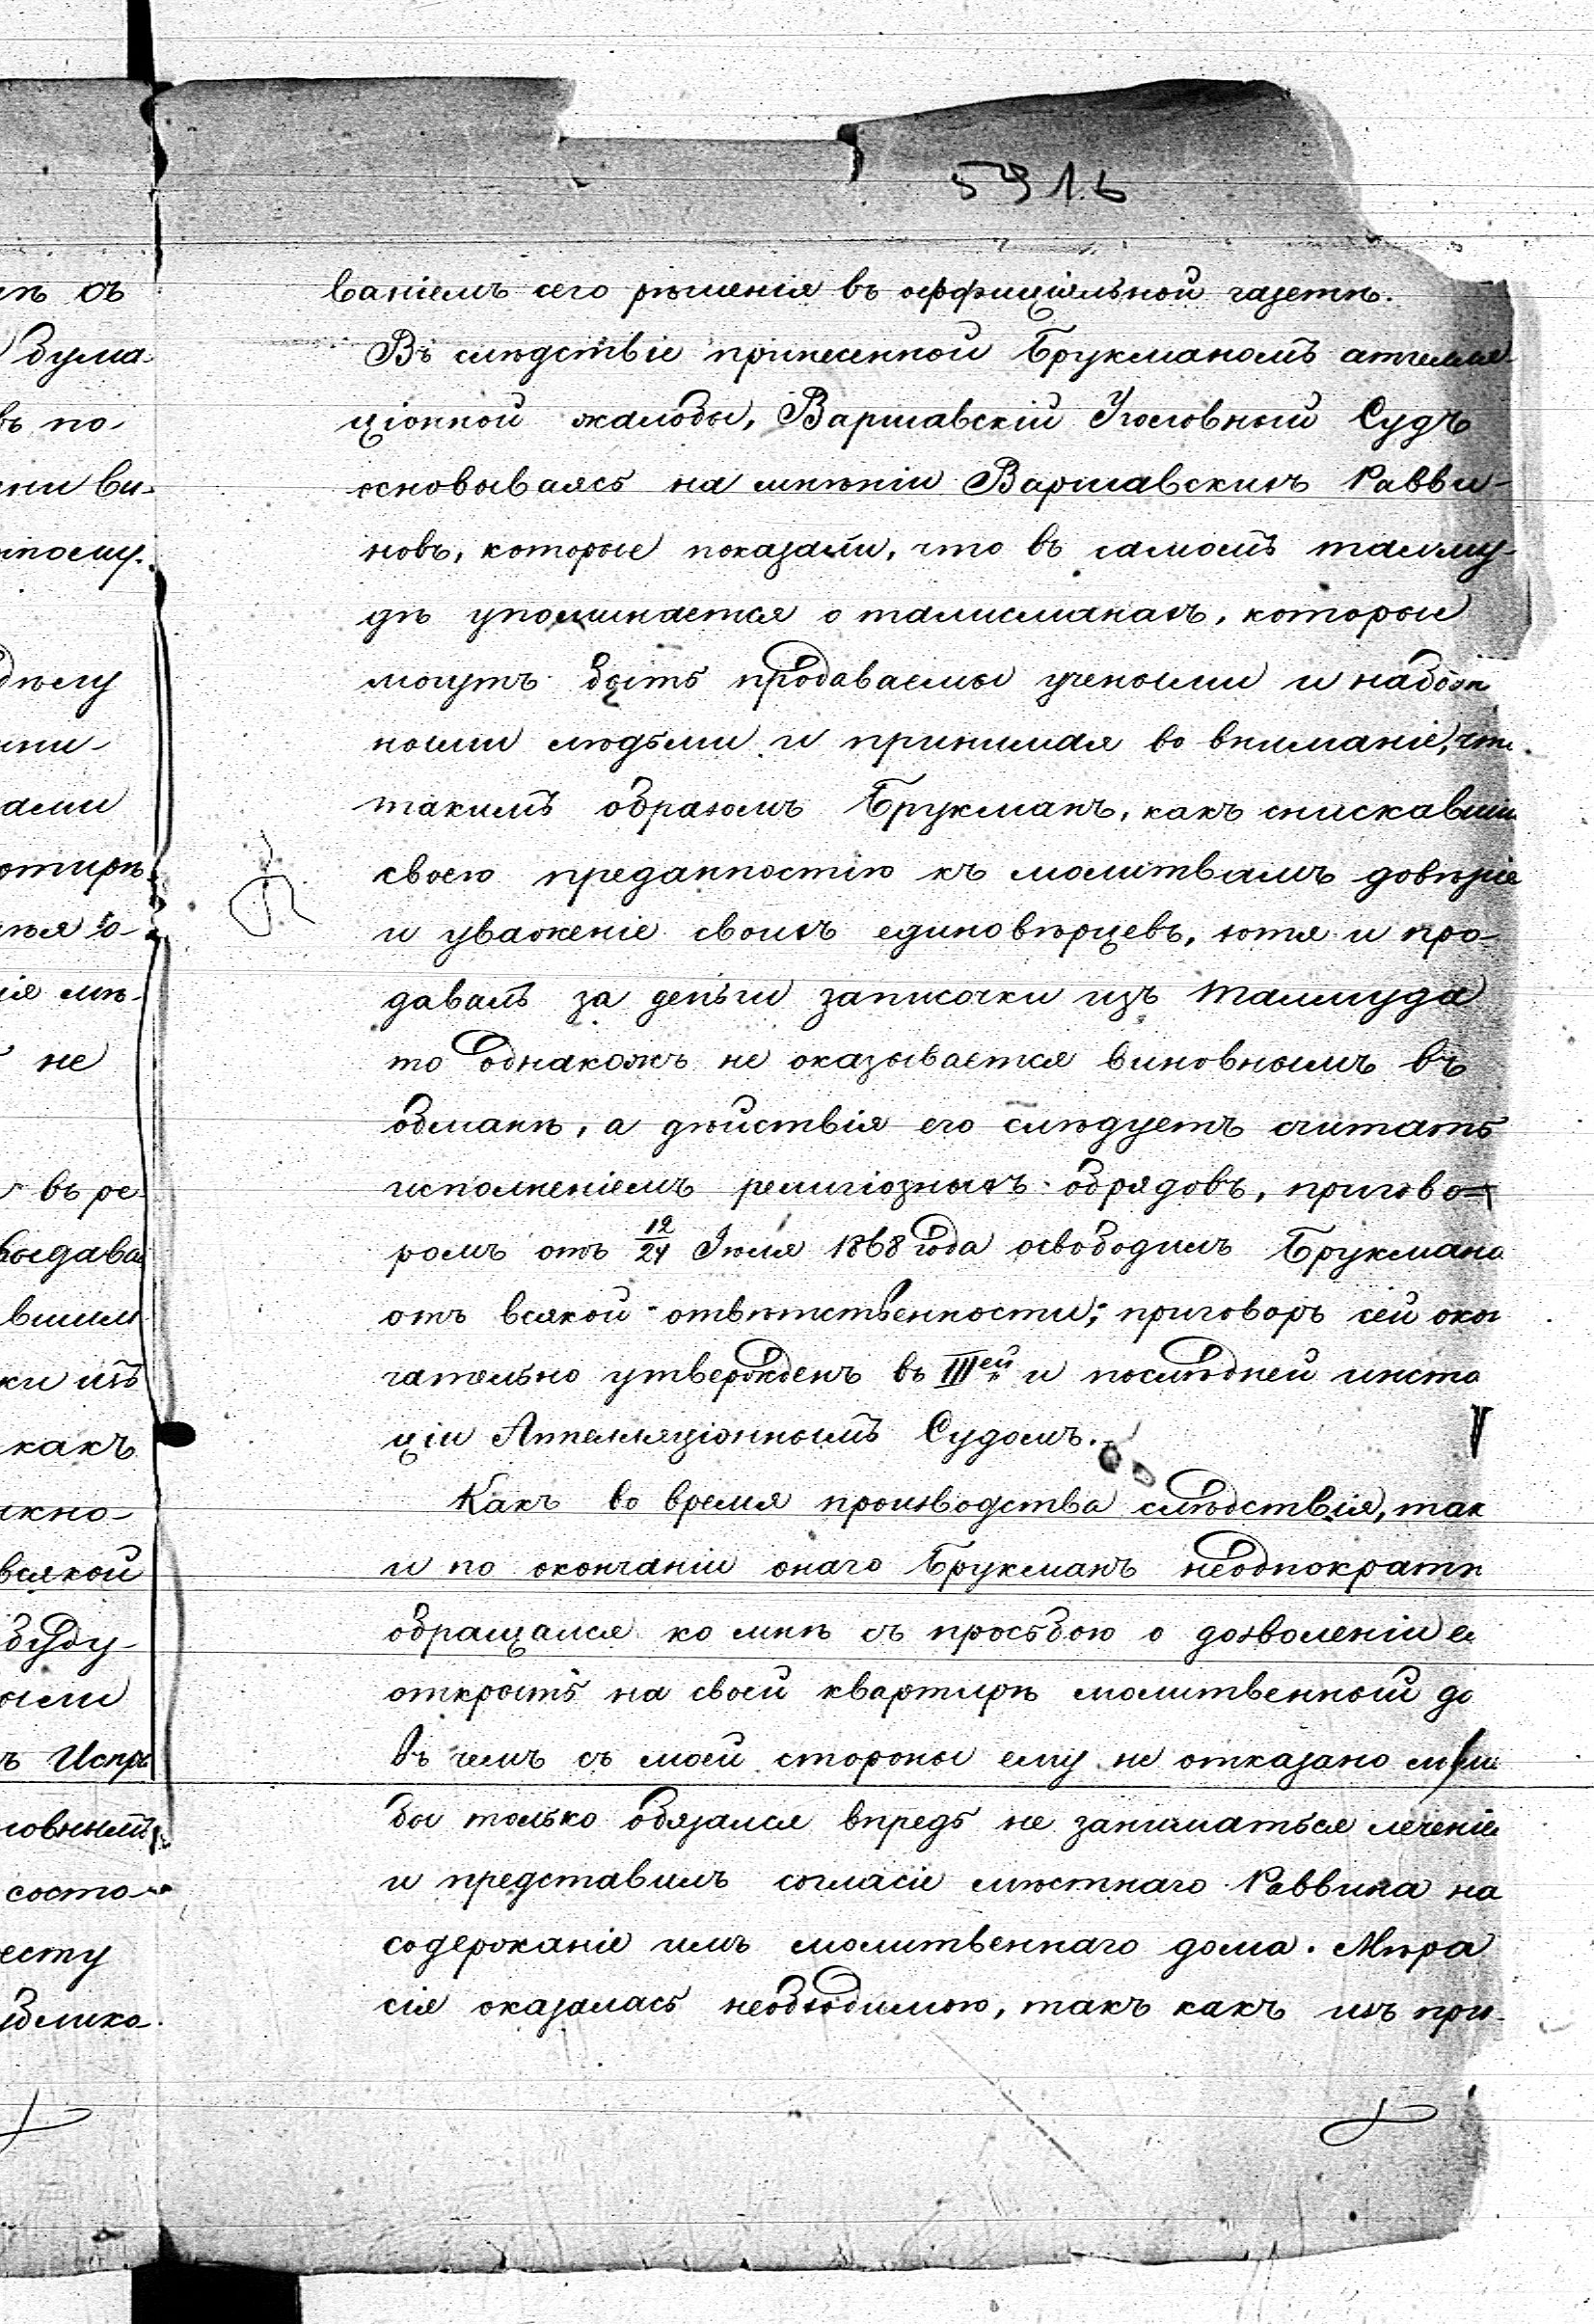 591.b
ваніемъ сего рѣшенія въ оффиціяльной газетѣ.
Въ слѣдствіе принесенной Брукманомъ аппелля-
ціонной жалобы, Варшавскій Уголовный Судъ
основываясь на мнѣніи Варшавскихъ Равви-
новъ, которые показали, что въ самомъ талму-
дѣ упоминается о талисманахъ, которые
могутъ быть продаваемы учеными и набож
ными людьми и принимая во вниманіе, что
такимъ образомъ Брукманъ, какъ снискавши
своею преданностію къ молитвамъ довѣріе
и уваженіе своихъ единовѣрцевъ, хотя и про-
давалъ за деньги записочки изъ талмуда
то однакожъ не оказывается виновнымъ въ
обманѣ, а дѣйствія его слѣдуетъ считать
исполненіемъ религіозныхъ обрядовъ, пригово=
ромъ отъ 12/24 Іюля 1868 года освободилъ Брукмана
отъ всякой отвѣтственности; приговоръ сей окон
чательно утвержденъ въ IIIей и послѣдней инста
ціи Аппелляціоннымъ Судомъ.
Какъ во время производства слѣдствія, так
и по окончаніи онаго Брукманъ неоднократн
обращался ко мнѣ съ просьбою о дозволеніи е
открыть на своей квартирѣ молитвенный до
въ чемъ съ моей стороны ему не отказано
бы только обязался впредь не заниматься леченіе
и представилъ согласіе мѣстнаго Раввина на
содержаніе имъ молитвеннаго дома. Мѣра
сія оказалась необходимою, такъ какъ изъ при-
нъ съ
бума
въ по-
ни ви-
тному.
дѣлу
ни-
ами
ртирѣ
ія мѣ-
не
въ ре
выдава
вшим
ки изъ
какъ
икно-
всякой
буду-
ыми
ъ Испр
ловный
состо-
есту
блико